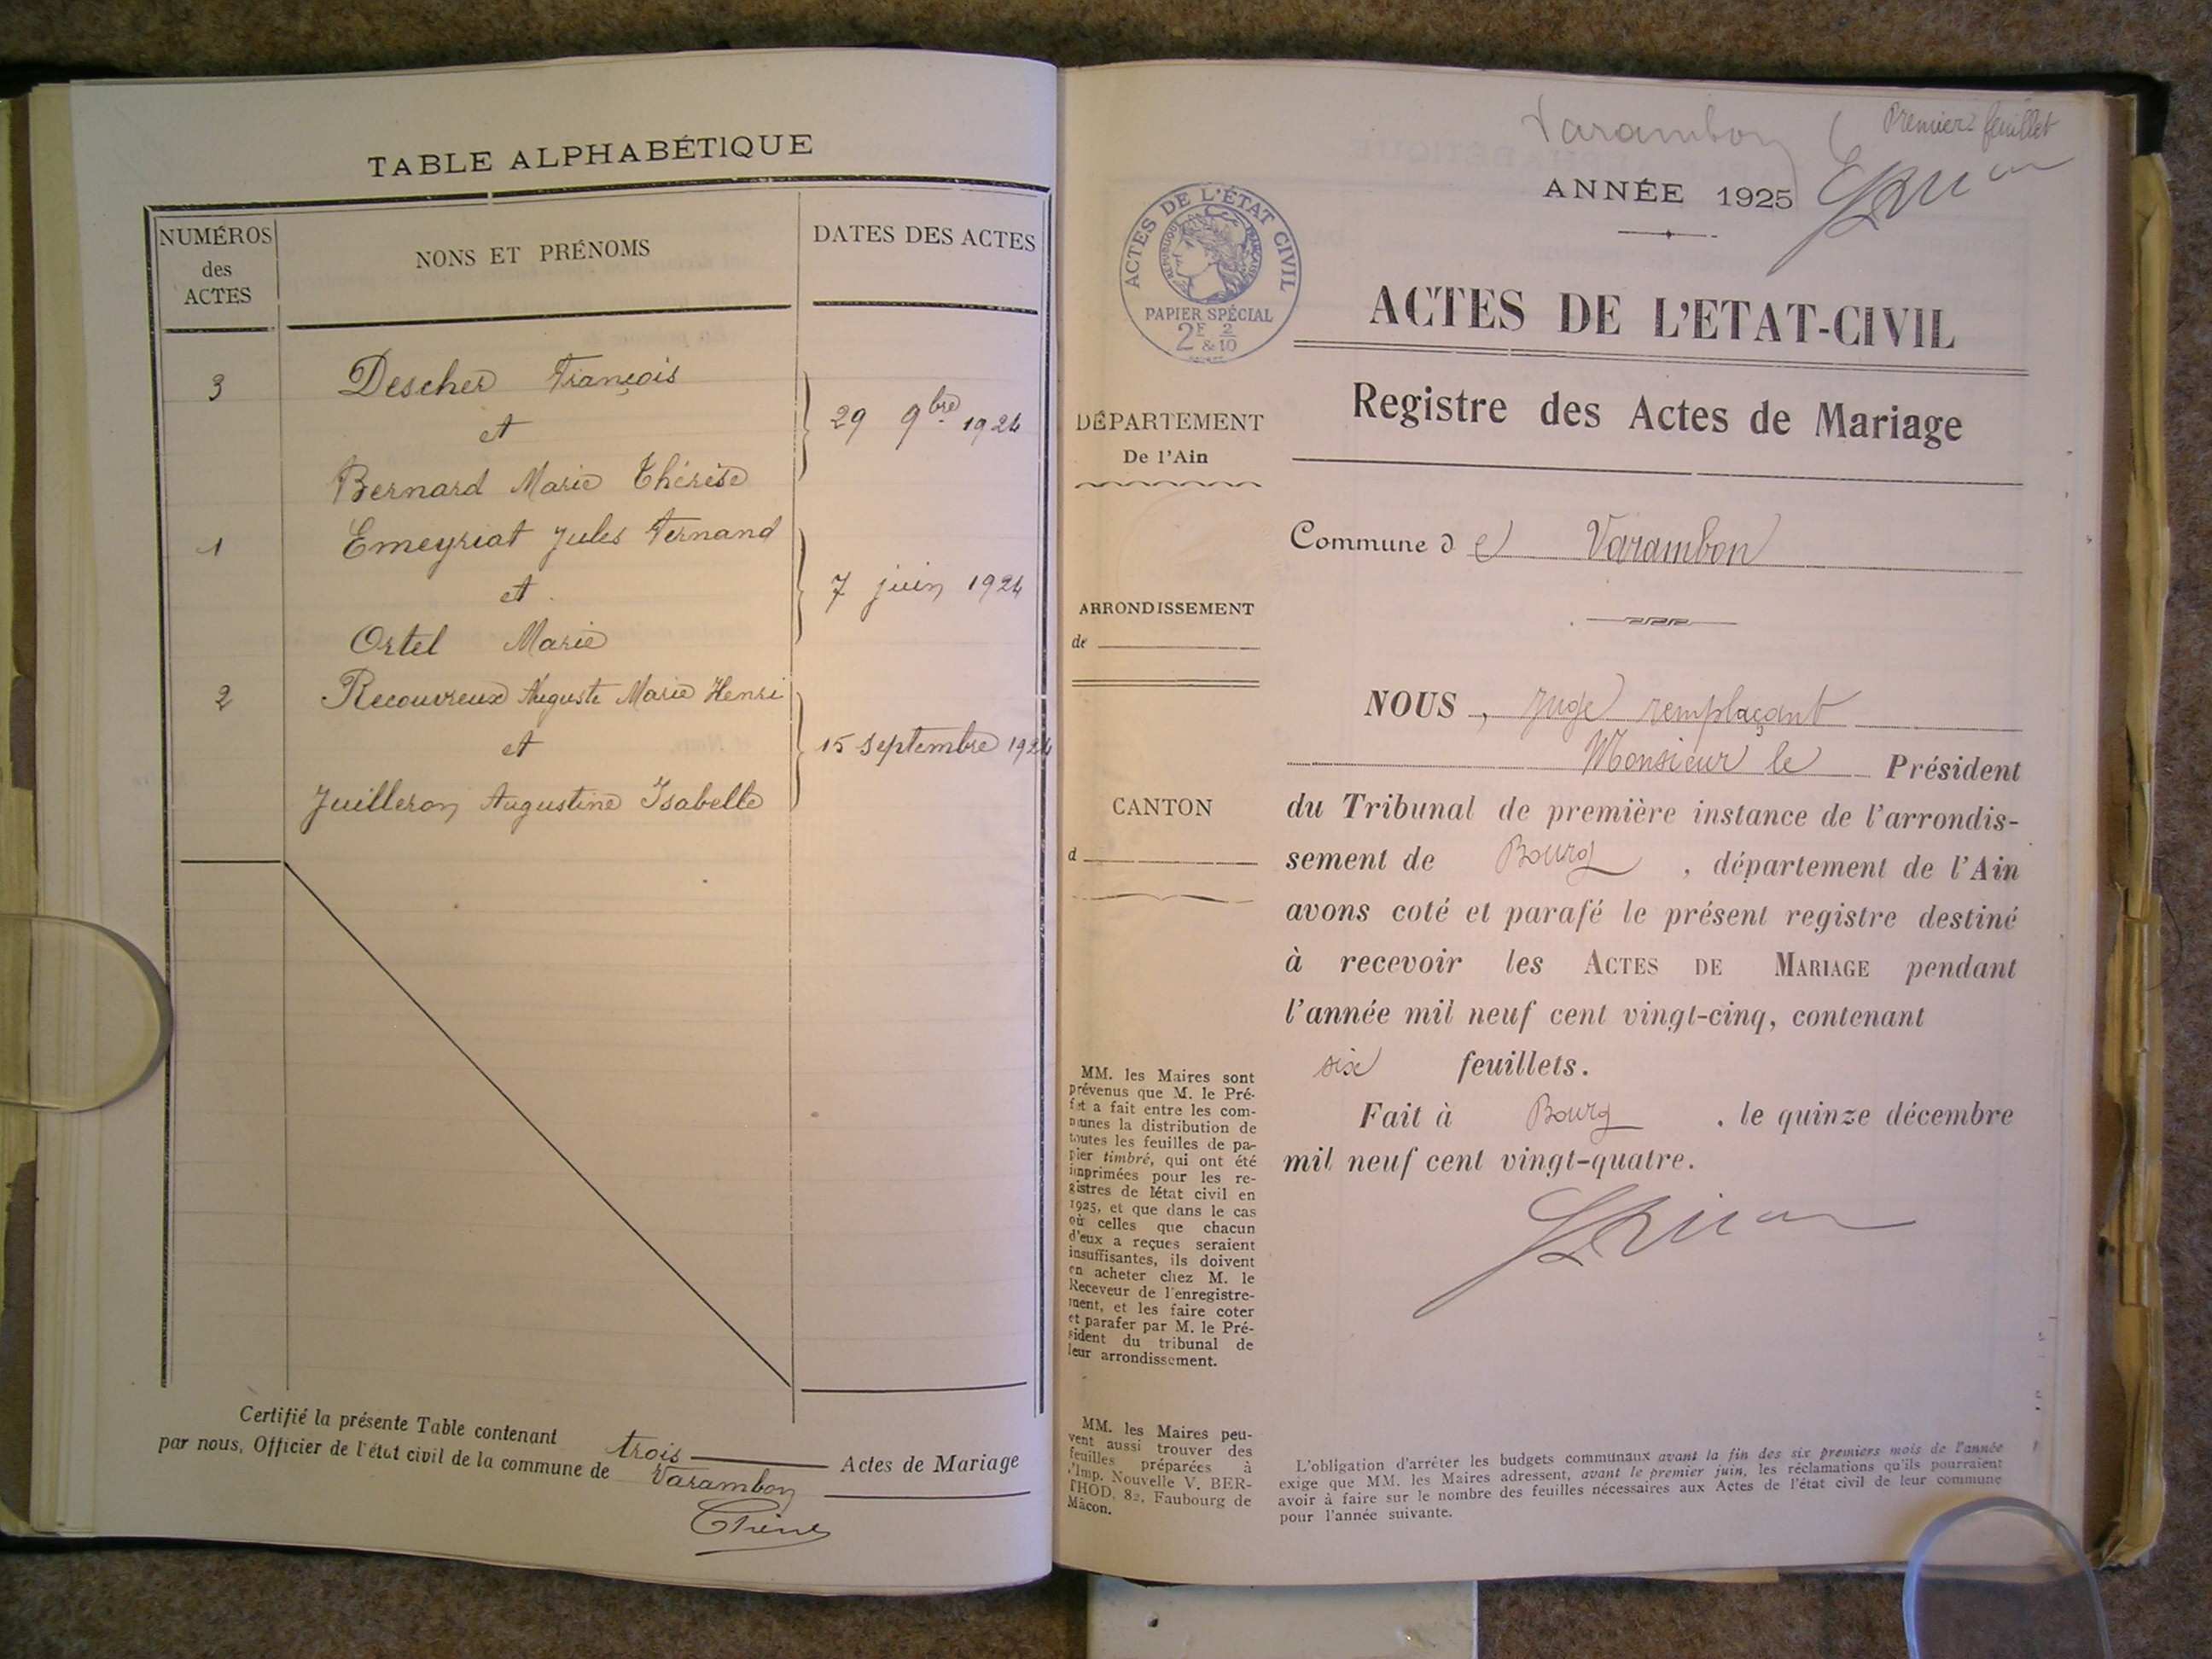 TABLE ALPHABÉTIQUE
NUMÉROS
des
ACTES
NONS ET PRÉNOMS
DATES DES ACTES
3
Descher François
et
Bernard Marie Thérèse
29 9bre 1924
1
Emeyriat Jules Fernand
et
Ortel Marie
7 juin 1924
2
Recouvreux Auguste Marie Henri
et
Juilleron Augustine Isabelle
15 septembre 1924
Certifié la présente Table contenant trois Actes de Mariage
par nous, Officier de l'état civil de la commune de Varambon
Varambon
Premier feuillet
ANNÉE 1925
ACTES DE L'ÉTAT CIVIL
RÉPUBLIQUE FRANÇAISE
PAPIER SPÉCIAL
2F & 2/10
ACTES DE L'ETAT-CIVIL
Registre des Actes de Mariage
DÉPARTEMENT
De l'Ain
Commune de Varambon
ARRONDISSEMENT
de
CANTON
d
NOUS, Juge remplaçant
Monsieur le Président
du Tribunal de première instance de l'arrondis-
sement de Bourg, département de l'Ain
avons coté et parafé le présent registre destiné
à recevoir les ACTES DE MARIAGE pendant
l'année mil neuf cent vingt-cinq, contenant
six feuillets.
Fait à Bourg, le quinze décembre
mil neuf cent vingt-quatre.
MM. les Maires sont
prévenus que M. le Pré-
fet a fait entre les com-
munes la distribution de
toutes les feuilles de pa-
pier timbré, qui ont été
imprimées pour les re-
gistres de l'état civil en
1925, et que dans le cas
où celles que chacun
d'eux a reçues seraient
insuffisantes, ils doivent
en acheter chez M. le
Receveur de l'enregistre-
ment, et les faire coter
et parafer par M. le Pré-
sident du tribunal de
leur arrondissement.
MM. les Maires peu-
vent aussi trouver des
feuilles préparées à
l'Imp. Nouvelle V. BER-
THOD, 82, Faubourg de
Mâcon.
L'obligation d'arrêter les budgets communaux avant la fin des six premiers mois de l'année
exige que MM. les Maires adressent, avant le premier juin, les réclamations qu'ils pourraient
avoir à faire sur le nombre des feuilles nécessaires aux Actes de l'état civil de leur commune
pour l'année suivante.